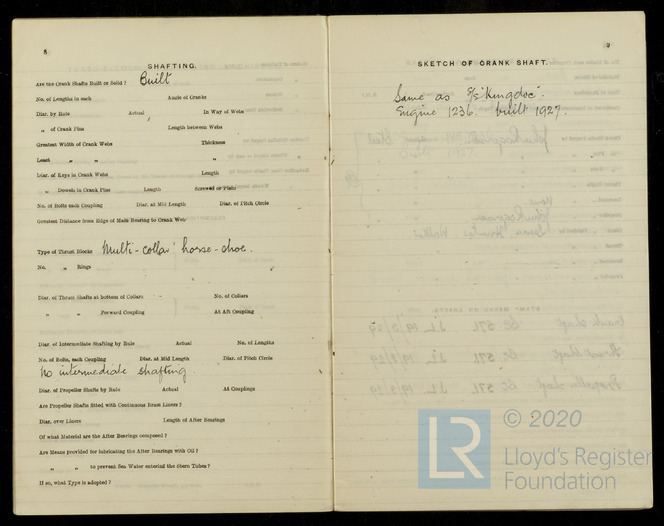 8
SHAFTING.
Are the Crank Shafts Built or Solid? Built
No. of Lengths in each Angle of Cranks
Diar. by Rule Actual In Way of Webs
„ of Crank Pins Length between Webs
Greatest Width of Crank Webs Thickness
Least „ „ „
Diar. of Keys in Crank Webs Length
„ Dowels in Crank Pins Length Screwed or Plain
No. of Bolts each Coupling Diar. at Mid Length Diar. of Pitch Circle
Greatest Distance from Edge of Main Bearing to Crank Web
Type of Thrust Blocks Multi-collar horse-shoe.
No. „ Rings
Diar. of Thrust Shafts at bottom of Collars No. of Collars
„ „ Forward Coupling At Aft Coupling
Diar. of Intermediate Shafting by Rule Actual No. of Lengths
No. of Bolts, each Coupling Diar. at Mid Length Diar. of Pitch Circle
No intermediate shafting.
Diar. of Propeller Shafts by Rule Actual At Couplings
Are Propeller Shafts fitted with Continuous Brass Liners?
Diar. over Liners Length of After Bearings
Of what Material are the After Bearings composed?
Are Means provided for lubricating the After Bearings with Oil?
„ „ to prevent Sea Water entering the Stern Tubes?
If so, what Type is adopted?
9
SKETCH OF CRANK SHAFT.
Same as S/S "Kingdoc".
Engine 1236. built 1927.
LR © 2020
Lloyd's Register
Foundation